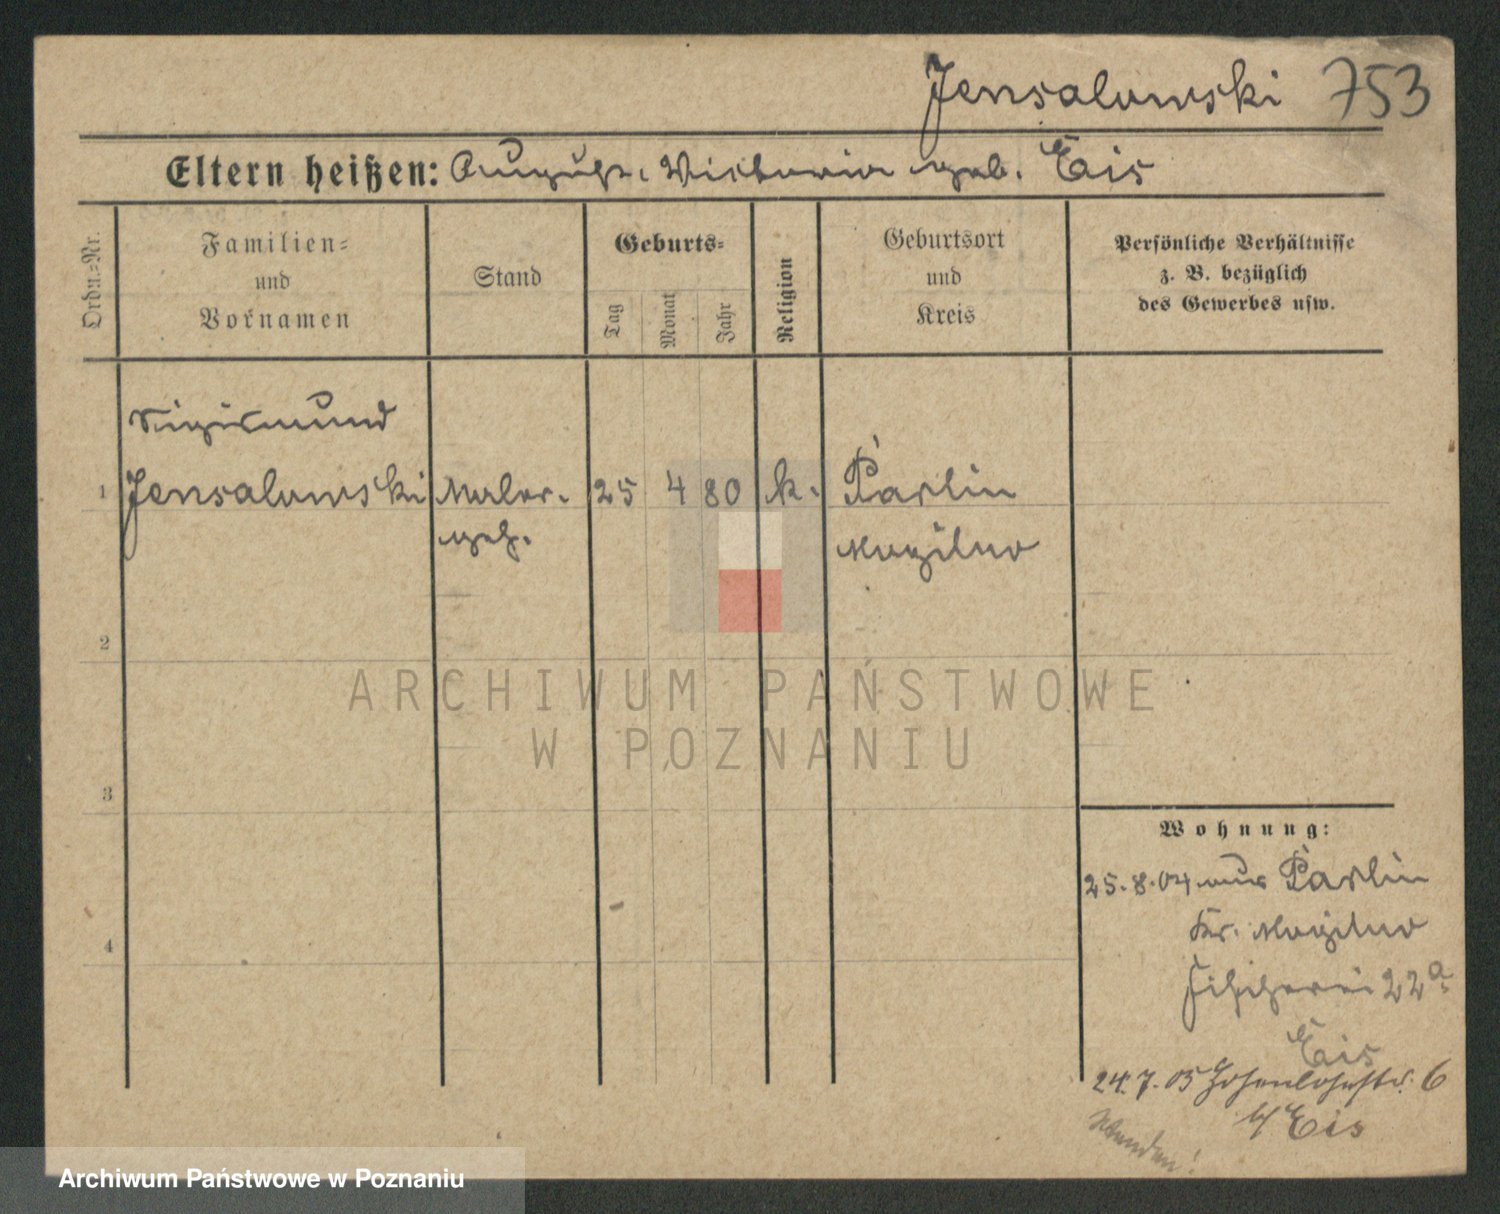 Jensalowski 753
Eltern heißen: August, Victoria geb. Eis
Ordn.=Nr.
Familien=
und
Vornamen
Stand
Geburts=
Tag
Monat
Jahr
Religion
Geburtsort
und
Kreis
Persönliche Verhältnisse
z. B. bezüglich
des Gewerbes usw.
Sigismund
1 Jensalowski Maler- 25 4 80 k. Parlin
geh. Mogilno
2
3
4
ARCHIWUM PAŃSTWOWE
W POZNANIU
Wohnung:
25.8.04 aus Parlin
Kr. Mogilno
Fischerei 22a
Eis
24.7.05 Hohenlohestr. 6
b/ Eis
Wenden!
Archiwum Państwowe w Poznaniu